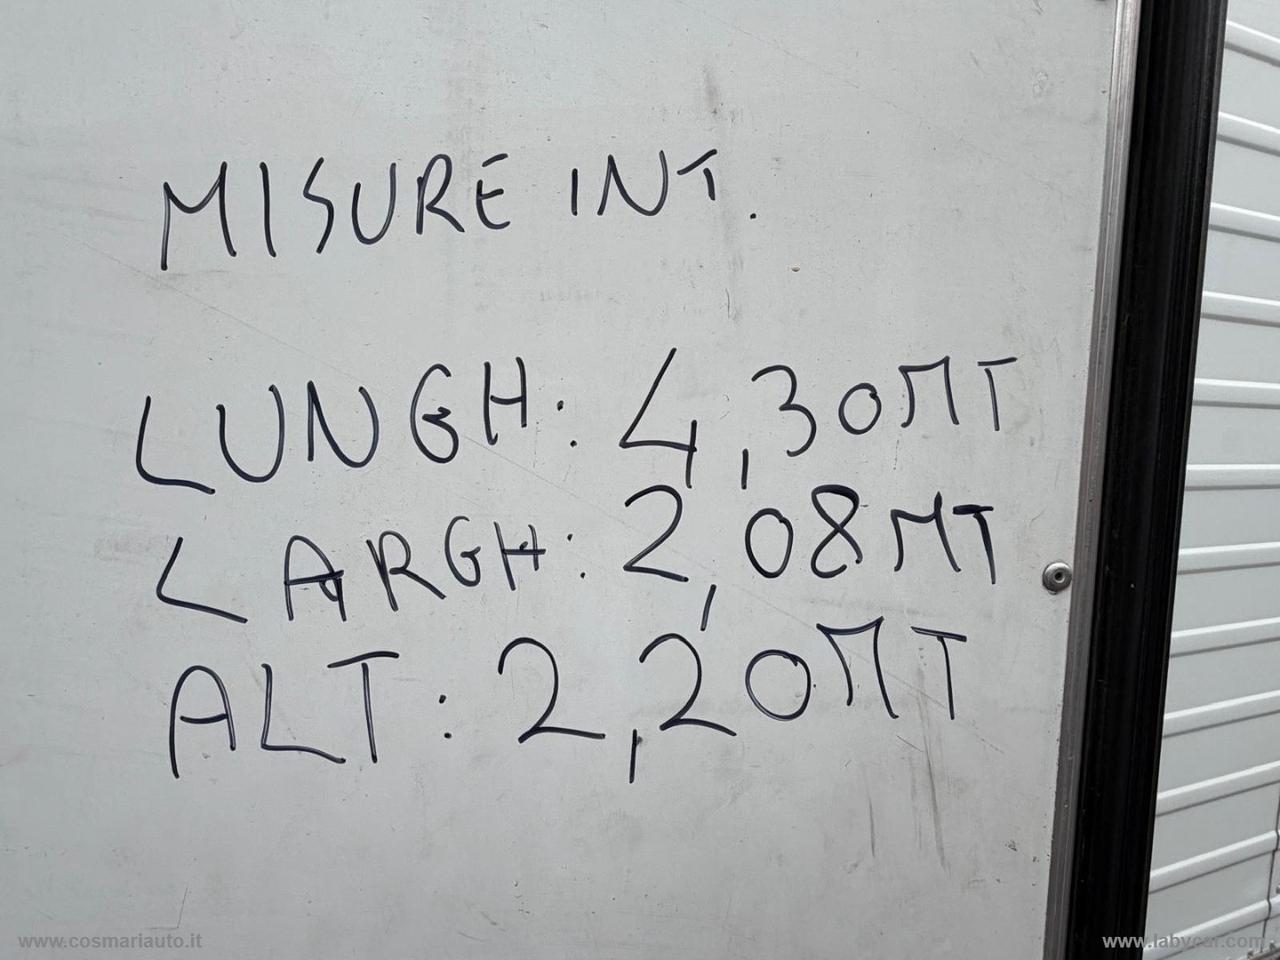 MISURE INT.
LUNGH: 4,30MT
LARGH: 2,08MT
ALT: 2,20MT
www.cosmariauto.it
www.labycar.com